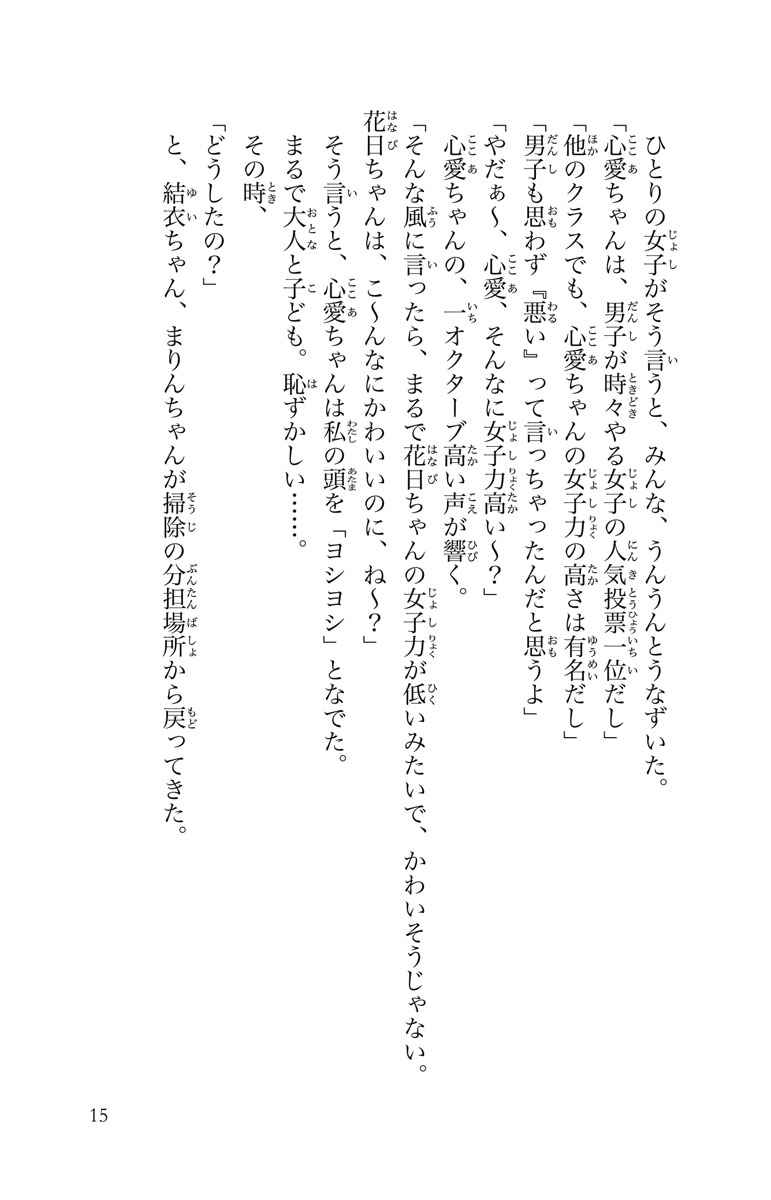 ひとりの女子がそう言うと、みんな、うんうんとうなずいた。
「心愛ちゃんは、男子が時々やる女子の人気投票一位だし」
「他のクラスでも、心愛ちゃんの女子力の高さは有名だし」
「男子も思わず『悪い』って言っちゃったんだと思うよ」
「やだぁ〜、心愛、そんなに女子力高い〜？」
心愛ちゃんの、一オクターブ高い声が響く。
「そんな風に言ったら、まるで花日ちゃんの女子力が低いみたいで、かわいそうじゃない。
花日ちゃんは、こ〜んなにかわいいのに、ね〜？」
そう言うと、心愛ちゃんは私の頭を「ヨシヨシ」となでた。
まるで大人と子ども。恥ずかしい……。
その時、
「どうしたの？」
と、結衣ちゃん、まりんちゃんが掃除の分担場所から戻ってきた。
15